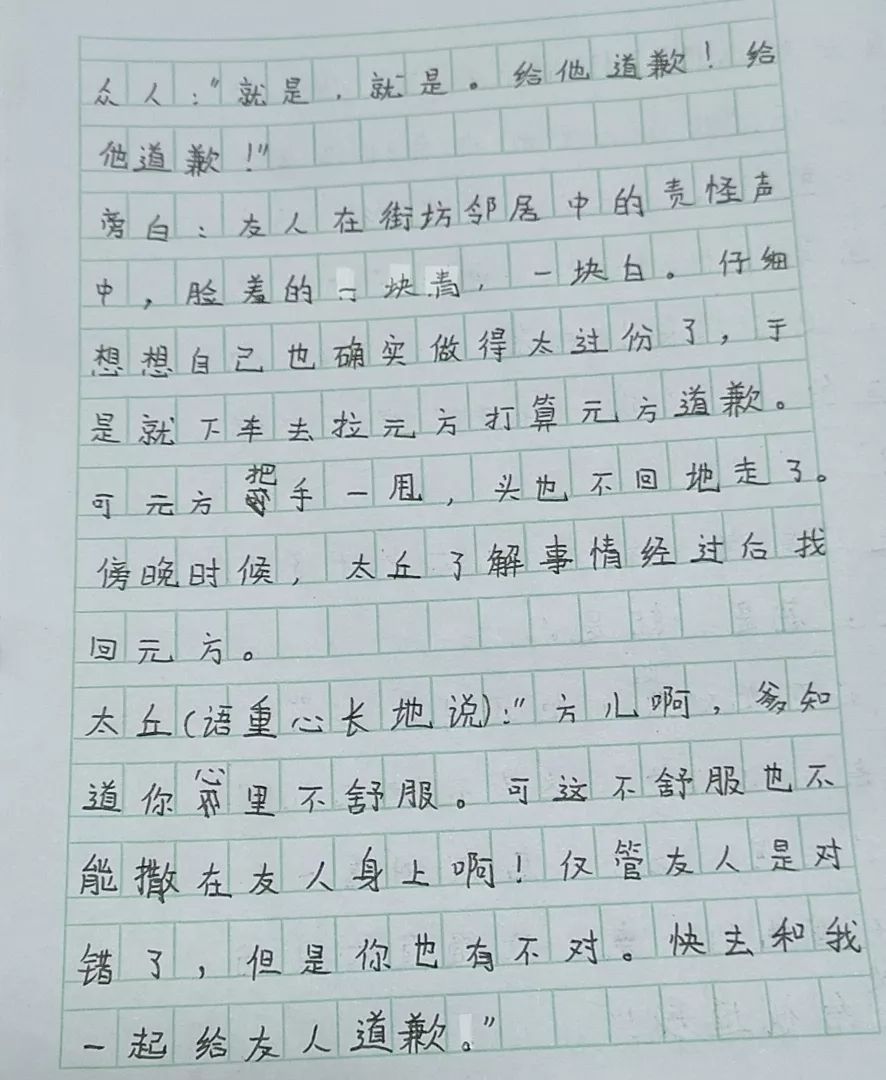 众人:"就是,就是。给他道歉!给
他道歉!"
旁白:友人在街坊邻居中的责怪声
中,脸羞的一块青,一块白。仔细
想想自己也确实做得太过份了,于
是就下车去拉元方打算元方道歉。
可元方把手一甩,头也不回地走了。
傍晚时候,太丘了解事情经过后找
回元方。
太丘(语重心长地说):"方儿啊,爹知
道你心里不舒服。可这不舒服也不
能撒在友人身上啊!仅管友人是对
错了,但是你也有不对。快去和我
一起给友人道歉。"